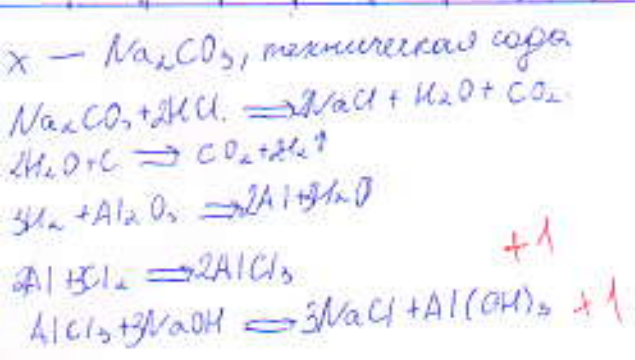 x — Na₂CO₃, техническая сода
Na₂CO₃+2HCl ⟹ 2NaCl + H₂O + CO₂
2H₂O+C ⟹ CO₂+2H₂↑
3H₂ + Al₂O₃ ⟹ 2Al+3H₂O
2Al+3Cl₂ ⟹ 2AlCl₃ +1
AlCl₃+3NaOH ⟹ 3NaCl + Al(OH)₃ +1